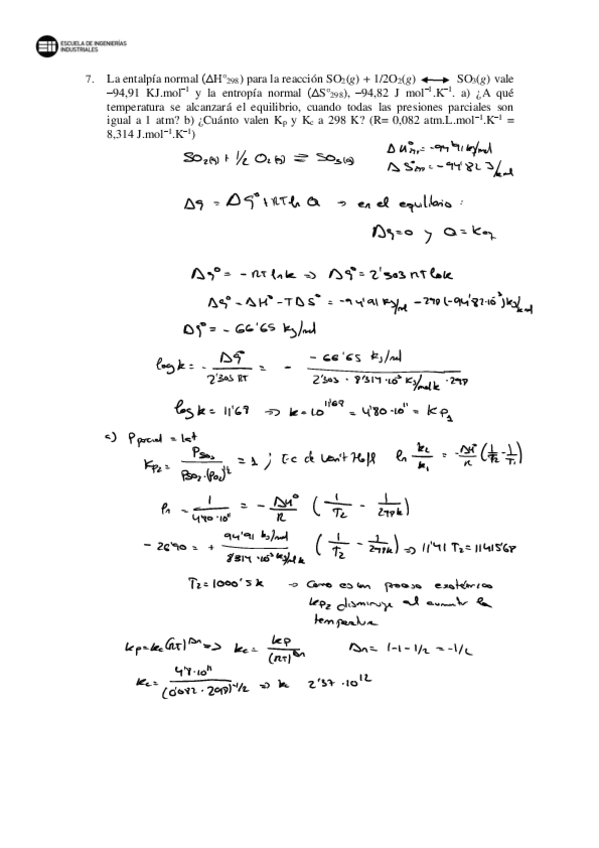 ESCUELA DE INGENIERÍAS
INDUSTRIALES
7. La entalpía normal (ΔH°298) para la reacción SO2(g) + 1/2O2(g) ⟷ SO3(g) vale
–94,91 KJ.mol⁻¹ y la entropía normal (ΔS°298), –94,82 J mol⁻¹.K⁻¹. a) ¿A qué
temperatura se alcanzará el equilibrio, cuando todas las presiones parciales son
igual a 1 atm? b) ¿Cuánto valen Kp y Kc a 298 K? (R= 0,082 atm.L.mol⁻¹.K⁻¹ =
8,314 J.mol⁻¹.K⁻¹)
SO2(g) + 1/2 O2(g) ⇌ SO3(g) ΔH°= -94'91 kJ/mol
ΔS°= -94'82 J/
Δg = Δg° + RT ln Q → en el equilibrio :
Δg=0 y Q = Keq
Δg° = - RT ln k ⇒ Δg° = 2'303 RT log k
Δg° = ΔH° - TΔS° = -94'91 kJ/mol - 298 (-94'82·10⁻³) kJ/
Δg° = - 66'65 kJ/mol
log k = - Δg° / 2'303 RT = - -66'65 kJ/mol / 2'303 · 8'314·10⁻³ kJ/mol k · 298
log k = 11'68 ⇒ k = 10^11'68 = 4'80·10¹¹ = Kp1
P parcial = 1 at
Kp2 = PSO3 / PSO2·(PO2)^1/2 = 1 ; Ec de Van't Hoff ln k2/k1 = -ΔH°/R (1/T2 - 1/T1)
ln 1/4'80·10¹¹ = - ΔH°/R (1/T2 - 1/298k)
- 26'90 = + 94'91 kJ/mol / 8'314·10⁻³ kJ/mol k (1/T2 - 1/298k) ⇒ 11'41 T2 = 11415'68
T2 = 1000'5 k → Como es un proceso exotérmico
kp2 disminuye al aumentar la
temperatura
kp = kc (RT)^Δn ⇒ kc = kp / (RT)^Δn Δn = 1-1-1/2 = -1/2
kc = 4'8·10¹¹ / (0'082 · 298)^-1/2 ⇒ k 2'37 · 10¹²